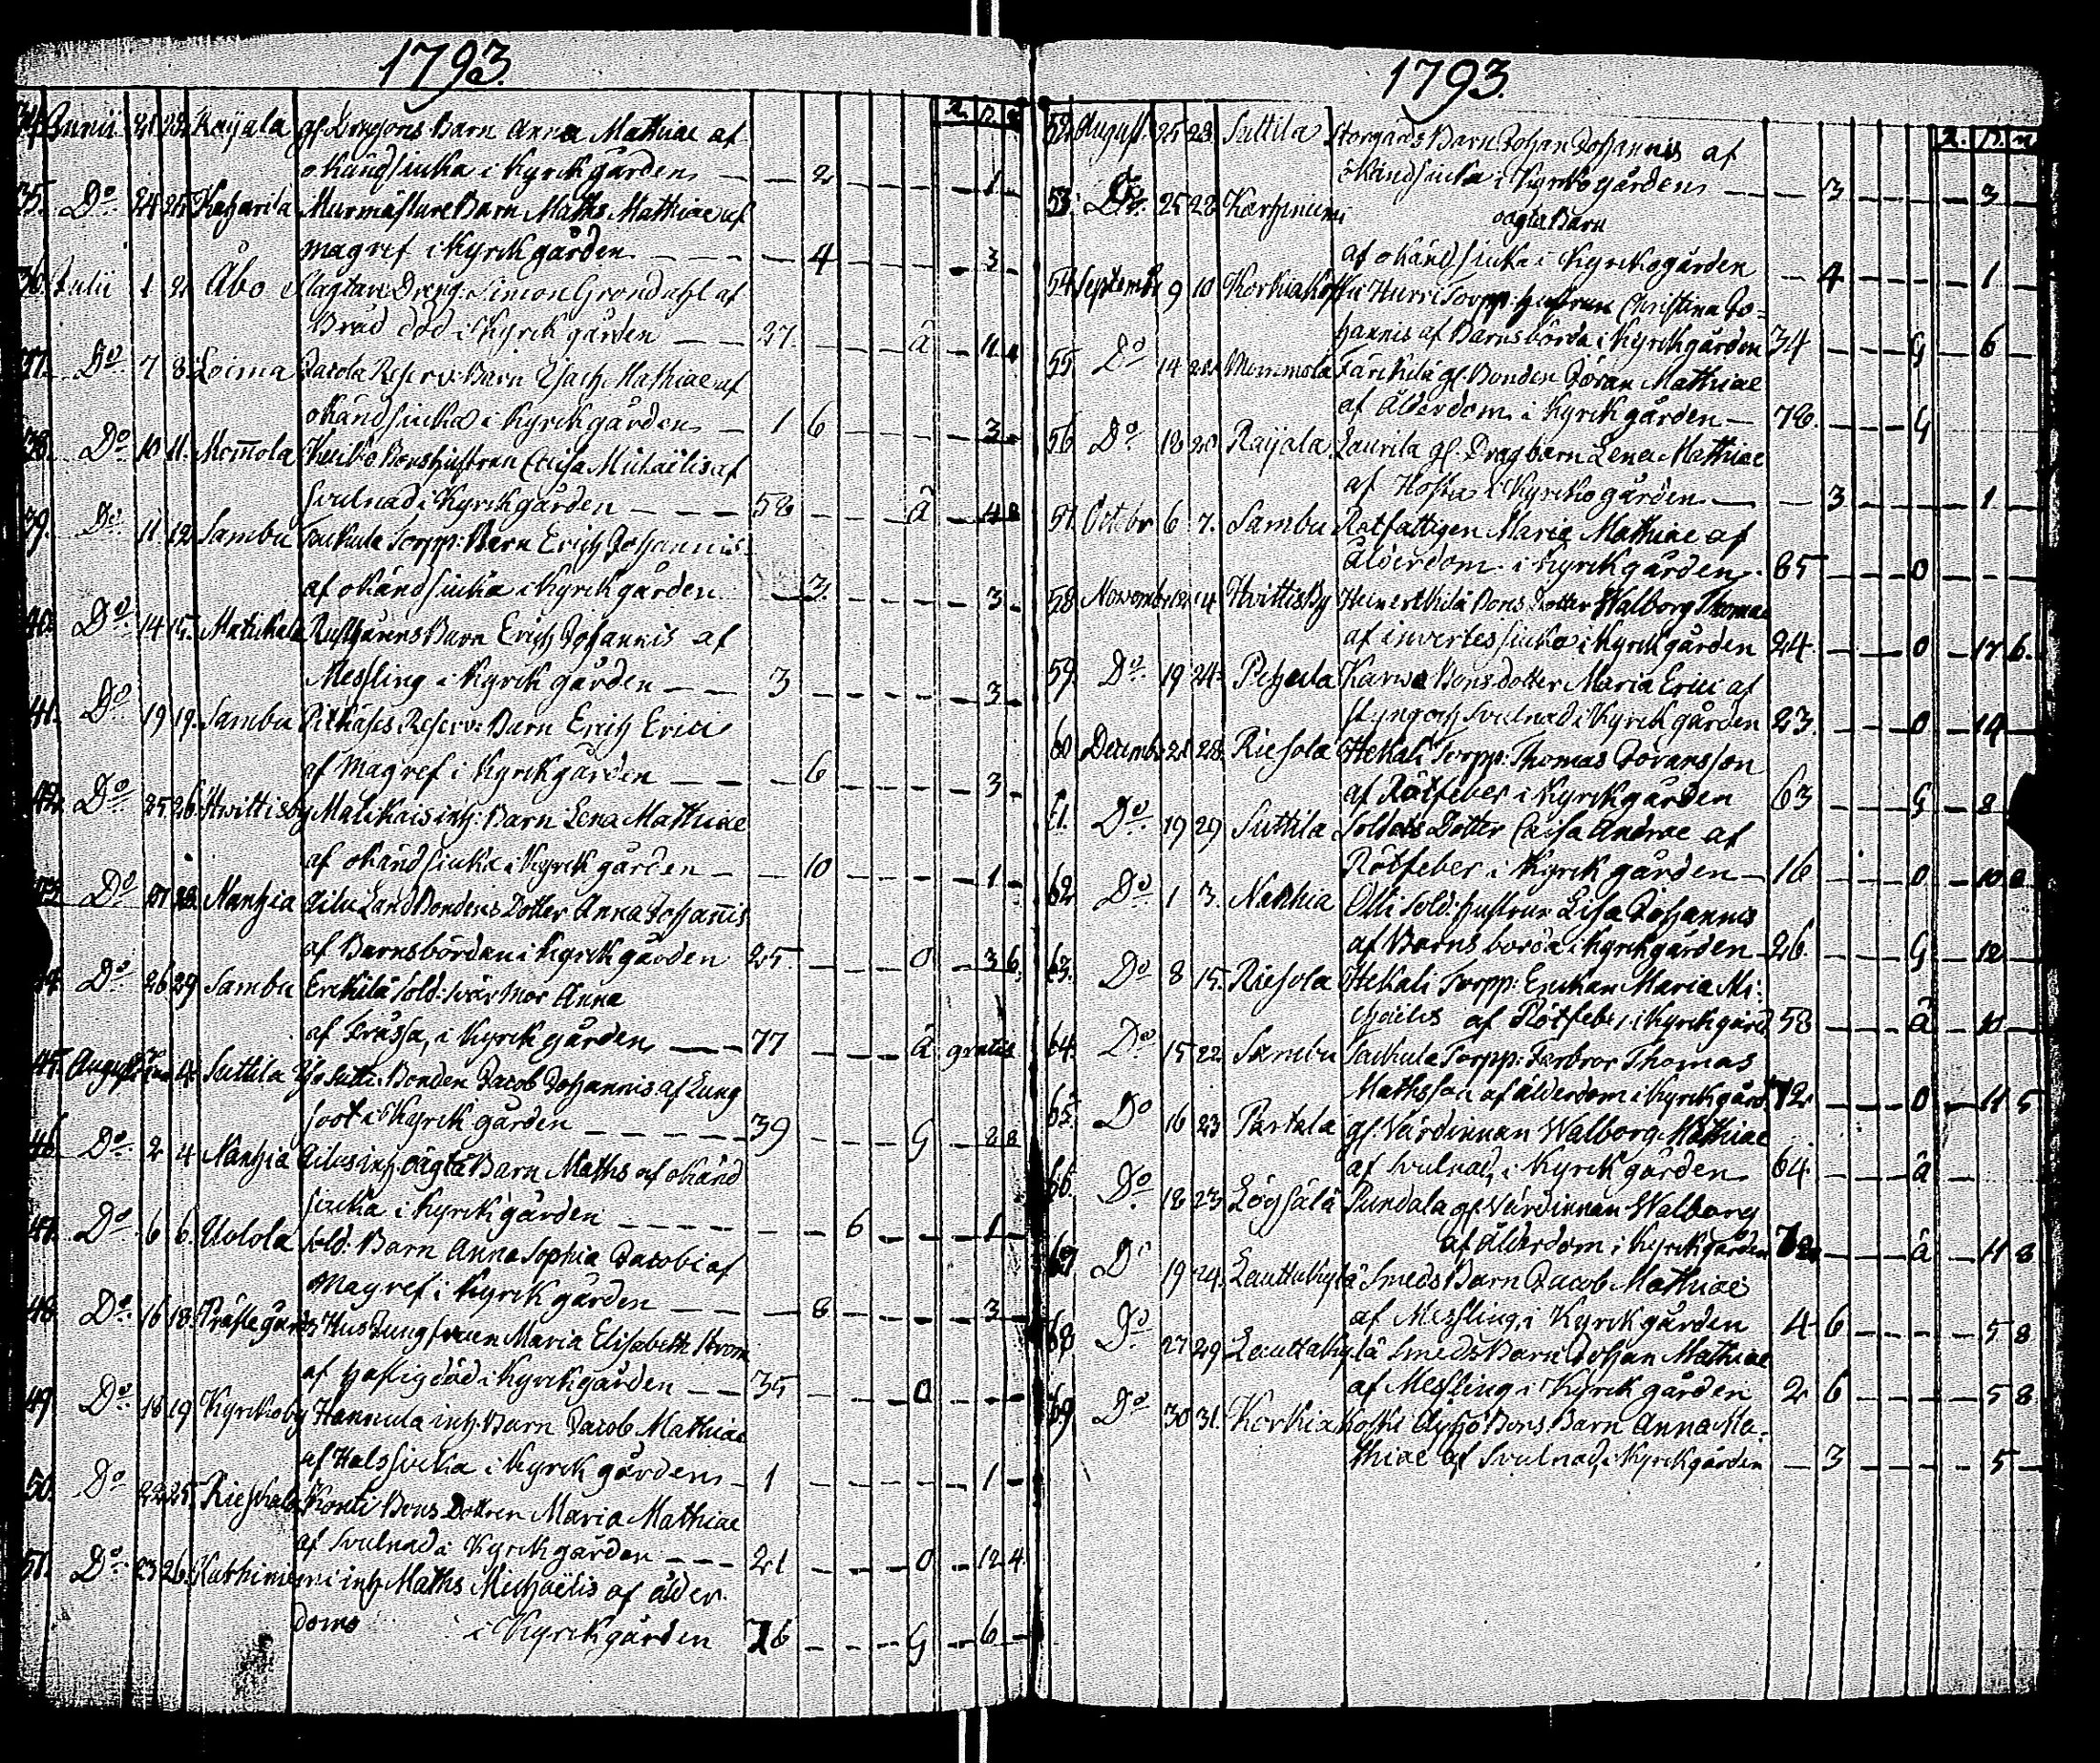 1793.
R. D. r
34. Junii 21 23 Raijala gl. Dragons Barn Anna Mathiae af
okänd siuka i Kyrck gården — — 2 — — — — 1
35. Do 24 25 Kaharila Murmästare Barn Maths Mathiae af
magref i Kyrck gården — — — 4 — — — — 3
36. Julii 1 2 Åbo Slagtare Dreng Simon Grondahl af
Bråd död i Kyrck gården — — 27 — — — ä — 11 4
37. Do 7 8 Loima Jacola Reserv: Barn Esach Mathiae af
okänd siuka i Kyrck gården — 1 6 — — — — 3
38. Do 10 11. Mom̄ola Bonshustrun Caisa Michaëlis af
svulnad i Kyrck gården — — — 58 — — — ä — 4 8
39. Do 11 12 Sambu Torpp: Barn Erich Johannis
af okänd siuka i Kyrck gården — 3 — — — — 3
40. Do 14 15. Matickala Rusthärens Barn Erich Johannis af
Messling i Kyrck gården — — 3 — — — — — 3
41. Do 19 19. Sambu Pitkäses Reserv: Barn Erich Erici
af magref i Kyrck gården — — — 6 — — — — 3
42. Do 25 26. Hvittisby Malikais inh: Barn Lena Mathiae
af okänd siuka i Kyrck gården — — 10 — — — — 1
43. Do 27 28. Nanhia Äilu Land Bondens Dotter Anna Johan̄is
af Barnsbördan i Kyrck gården 25 — — — O — 3 6
44. Do 26 29 Sambu Erckilä Sold: svär Mor Anna
af Tråssa, i Kyrck gården — — 77 — — — ä gratis
45. August 4. Suttila Yso Sutti Bonden Jacob Johannis af Lung
soot i Kyrck gården — — — — 39 — — — G — 2 8
46. Do 2 4 Nanhia Äilus inh. oägta Barn Maths af okänd
siuka i Kyrck gården — — — — — 6 — — — 1
47. Do 6 6. Uotola Sold: Barn Anna Sophia Jacobi af
Magref i Kyrck gården — — — 8 — — — — 3
48. Do 16 18. Prästegårds Hus Jungfruen Maria Elisabeth Strom
af hastig död i Kyrck gården — — 35 — — — O — — —
49. Do 18 19 Kyrckoby Hannula inh. Barn Jacob Mathiae
af Halssiucka i Kyrck gården — 1 — — — — — 1
50. Do 22 25. Rieskala Konti Bons Dottren Maria Mathiae
af svulnad i Kyrck gården — — — 21 — — — O — 12 4
51. Do 23 26. inh. Maths Michaëlis af ålder
dom i Kyrck gården 76 — — — G — 6
1793.
R. D. r
52. August. 25 28. Suttila Storgårds Barn Johan Johannis af
okänd siucka i Kyrcko gården — — 3 — — — — 3
53. Do 25 28 Karhiniemi oägta Barn
af okänd siucka i Kyrckogården — 4 — — — — 1
54. Septembr 9 10 Korkiakoski Hurri Torpp: hustrun Christina Jo=
hannis af Barnsbörda i Kyrck gården 34 — — — G — 6
55. Do 14 22. Mommola Färckilä gl. Bonden Jöran Mathiae
af Ålderdom i Kyrck gården — 78. — — — G
56. Do 18 20 Raijala Laurila gl. Drag barn Lena Mathiae
af Hosta i Kyrcko gården — — 3 — — — — 1
57. Octobr 6 7. Sambu Rotfattigen Maria Mathiae af
Ålderdom i Kyrck gården 85 — — — O — — —
58. Novembr 12 14 Hvittisby Heinerckilä Bons Dotter Walborg Thomae
af invertes siucka i Kyrck gården 24 — — — O — 17 6.
59. Do 19 24 Pehula Karwa Bons dotter Maria Erici af
styng och svulnad i Kyrck gården 23. — — — O — 14
60 Decembr 21 28. Riesola Hekali Torpp: Thomas Göransson
af Rötfeber i Kyrck gården 63 — — — G — 8
61. Do 19 29 Suttila Soldats Dotter Caisa Andrae af
Rötfeber i Kyrck gården — 16 — — — O — 10 8
62. Do 1 3. Nanhia Olli Sold: hustrun Lisa Johannis
af Barns borda i Kyrck gården — 26. — — — G — 12
63. Do 8 15. Riesola Hekali Torpp: Enckan Maria Mi:
chaëlis af Rötfeber, i Kyrck gård. 58 — — — ä — 10
64. Do 15 22 Sambu Torpp: Farbror Thomas
Mathsson af ålderdom i Kyrck gård. 72 — — — O — 11 5
65. Do 16 23 Pastala gl. Värdinnan Walborg Mathiae
af svulnad, i Kyrck gården 64. — — — ä — —
66. Do 18 23 Löysälä Pundala gl. Värdinnan Walborg
af Ålderdom i Kyrck gården 72 — — — ä — 11 8
67 Do 19 24. Lauttakylä Smeds Barn Jacob Mathiae
af Messling, i Kyrck gården 4 6 — — — — 5 8
68 Do 27 29 Lauttakylä Smeds Barn Johan Mathiae
af Messling i Kyrck gården 2 6 — — — — 5 8
69 Do 30 31. Korkiakoski Bons Barn Anna Ma=
thiae af svulnad, i Kyrck gården — 3 — — — — 5